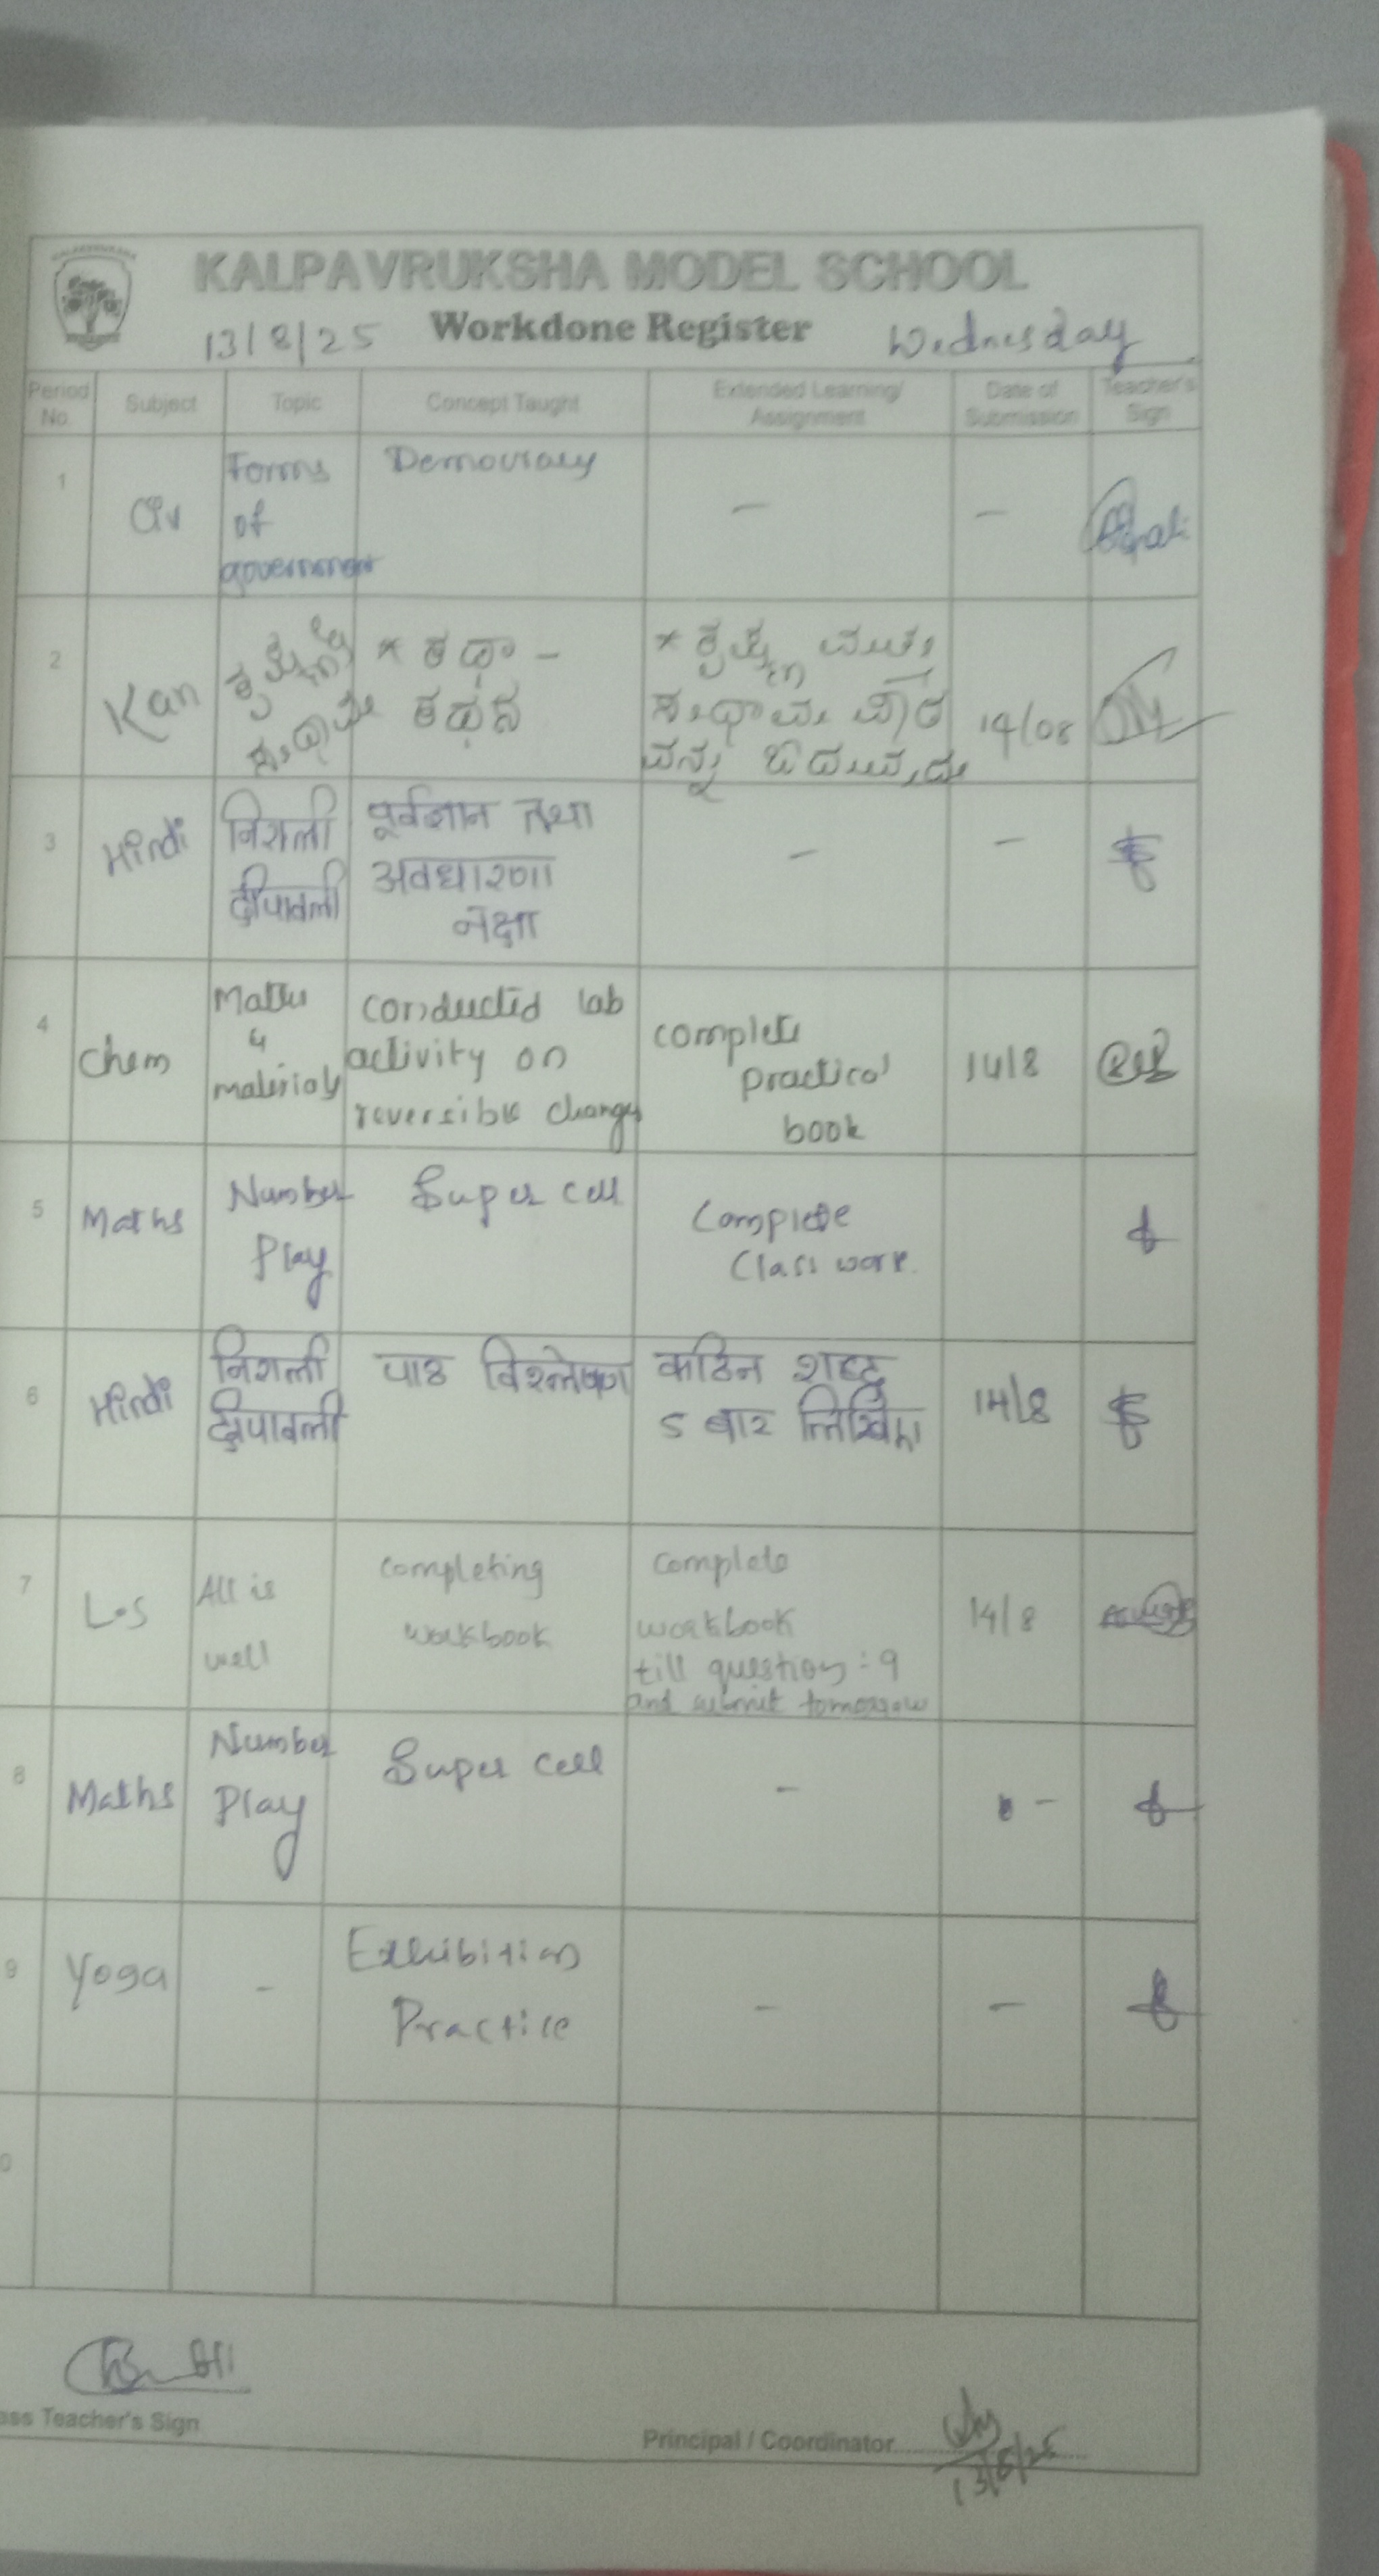 KALPAVRUKSHA MODEL SCHOOL
13/8/25 Workdone Register Wednesday
Period No. Subject Topic Concept Taught Extended Learning/ Assignment Date of Submission Teacher's Sign
1 Civ Forms of government Democracy - -
2 Kan * ಕಥಾ - ಕಥನ * 14/08
3 Hindi निराली दीपावली पूर्वज्ञान तथा अवधारणा नक्षा - -
4 Chem Matter & materials conducted lab activity on reversible changes complete practical book 14/8
5 Maths Number Play Super cell Complete Class work.
6 Hindi निराली दीपावली पाठ विश्लेषण कठिन शब्द 5 बार लिखिए 14/8
7 L.S All is well completing workbook complete workbook till question :- 9 and submit tomorrow 14/8
8 Maths Number Play Super cell - -
9 Yoga - Exhibition Practice - -
Teacher's Sign
Principal / Coordinator
13/8/25